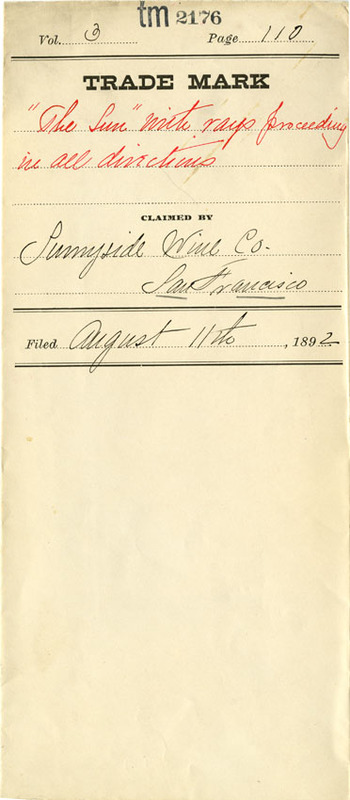 tm 2176
Vol. 3 Page 110
TRADE MARK
"The Sun" with rays proceeding
in all directions
CLAIMED BY
Sunnyside Wine Co.
San Francisco
Filed August 11th, 1892